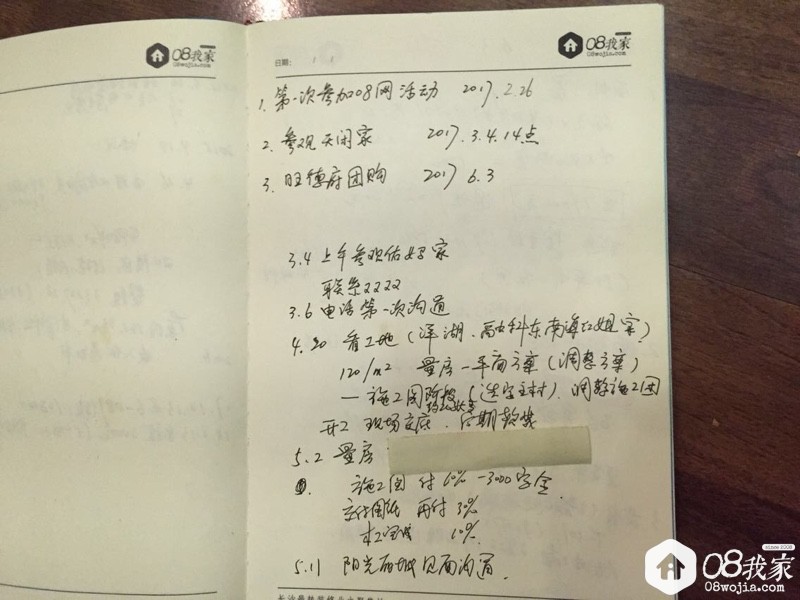 08我家
08wojia.com
08我家
08wojia.com
日期：
1. 第一次参加08网活动 2017.2.26
2. 参观天闲家 2017.3.4.14点
3. 旺德府团购 2017 6.3
3.4 上午参观佑好家
联系2222
3.6 电话第一次沟通
4.20 看工地（洋湖、东南海 姐家）
120/m² 量房一平面方案（调整方案）
一施工图阶段（选定主材）、调整施工图
开工 现场交底、后期软装
5.2 量房
施工图 付60% -3000定金
交付图纸 再付30%
木工完成 10%
5.11 阳光西城见面沟通。
08我家
08wojia.com